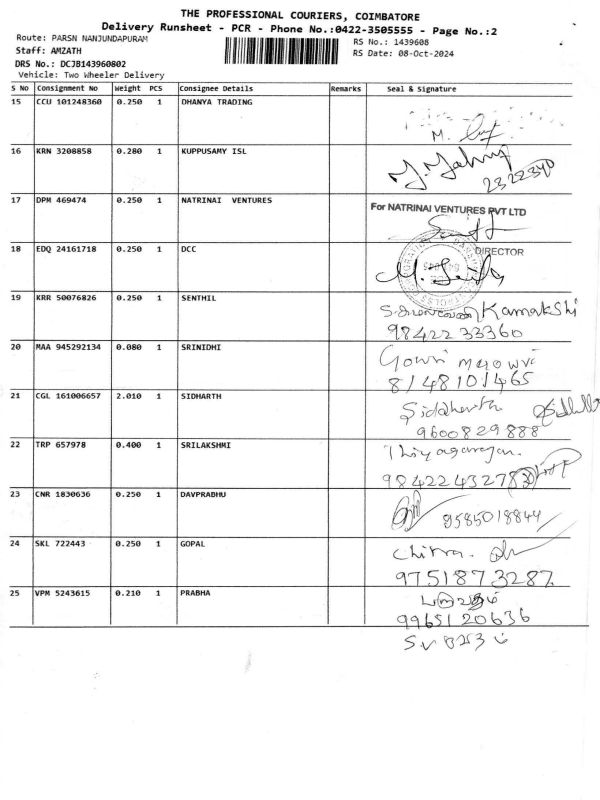 THE PROFESSIONAL COURIERS, COIMBATORE
Delivery Runsheet - PCR - Phone No.:0422-3505555 - Page No.:2
Route: PARSN NANJUNDAPURAM
RS No.: 1439608
Staff: AMZATH
RS Date: 08-Oct-2024
DRS No.: DCJB143960802
Vehicle: Two Wheeler Delivery
S No Consignment No Weight PCS Consignee Details Remarks Seal & Signature
15 CCU 101248360 0.250 1 DHANYA TRADING
M.
16 KRN 3208858 0.280 1 KUPPUSAMY ISL
2322340
17 DPM 469474 0.250 1 NATRINAI VENTURES
For NATRINAI VENTURES PVT LTD
DIRECTOR
18 EDQ 24161718 0.250 1 DCC
19 KRR 50076826 0.250 1 SENTHIL
Kamakshi
98422 33360
20 MAA 945292134 0.080 1 SRINIDHI
Gowri
8148101465
21 CGL 161006657 2.010 1 SIDHARTH
Siddharth
9600829888
22 TRP 657978 0.400 1 SRILAKSHMI
Thiyagarajan.
9842243278
23 CNR 1830636 0.250 1 DAVPRABHU
9585018844
24 SKL 722443 0.250 1 GOPAL
Chitra.
9751873287
25 VPM 5243615 0.210 1 PRABHA
99651 20636